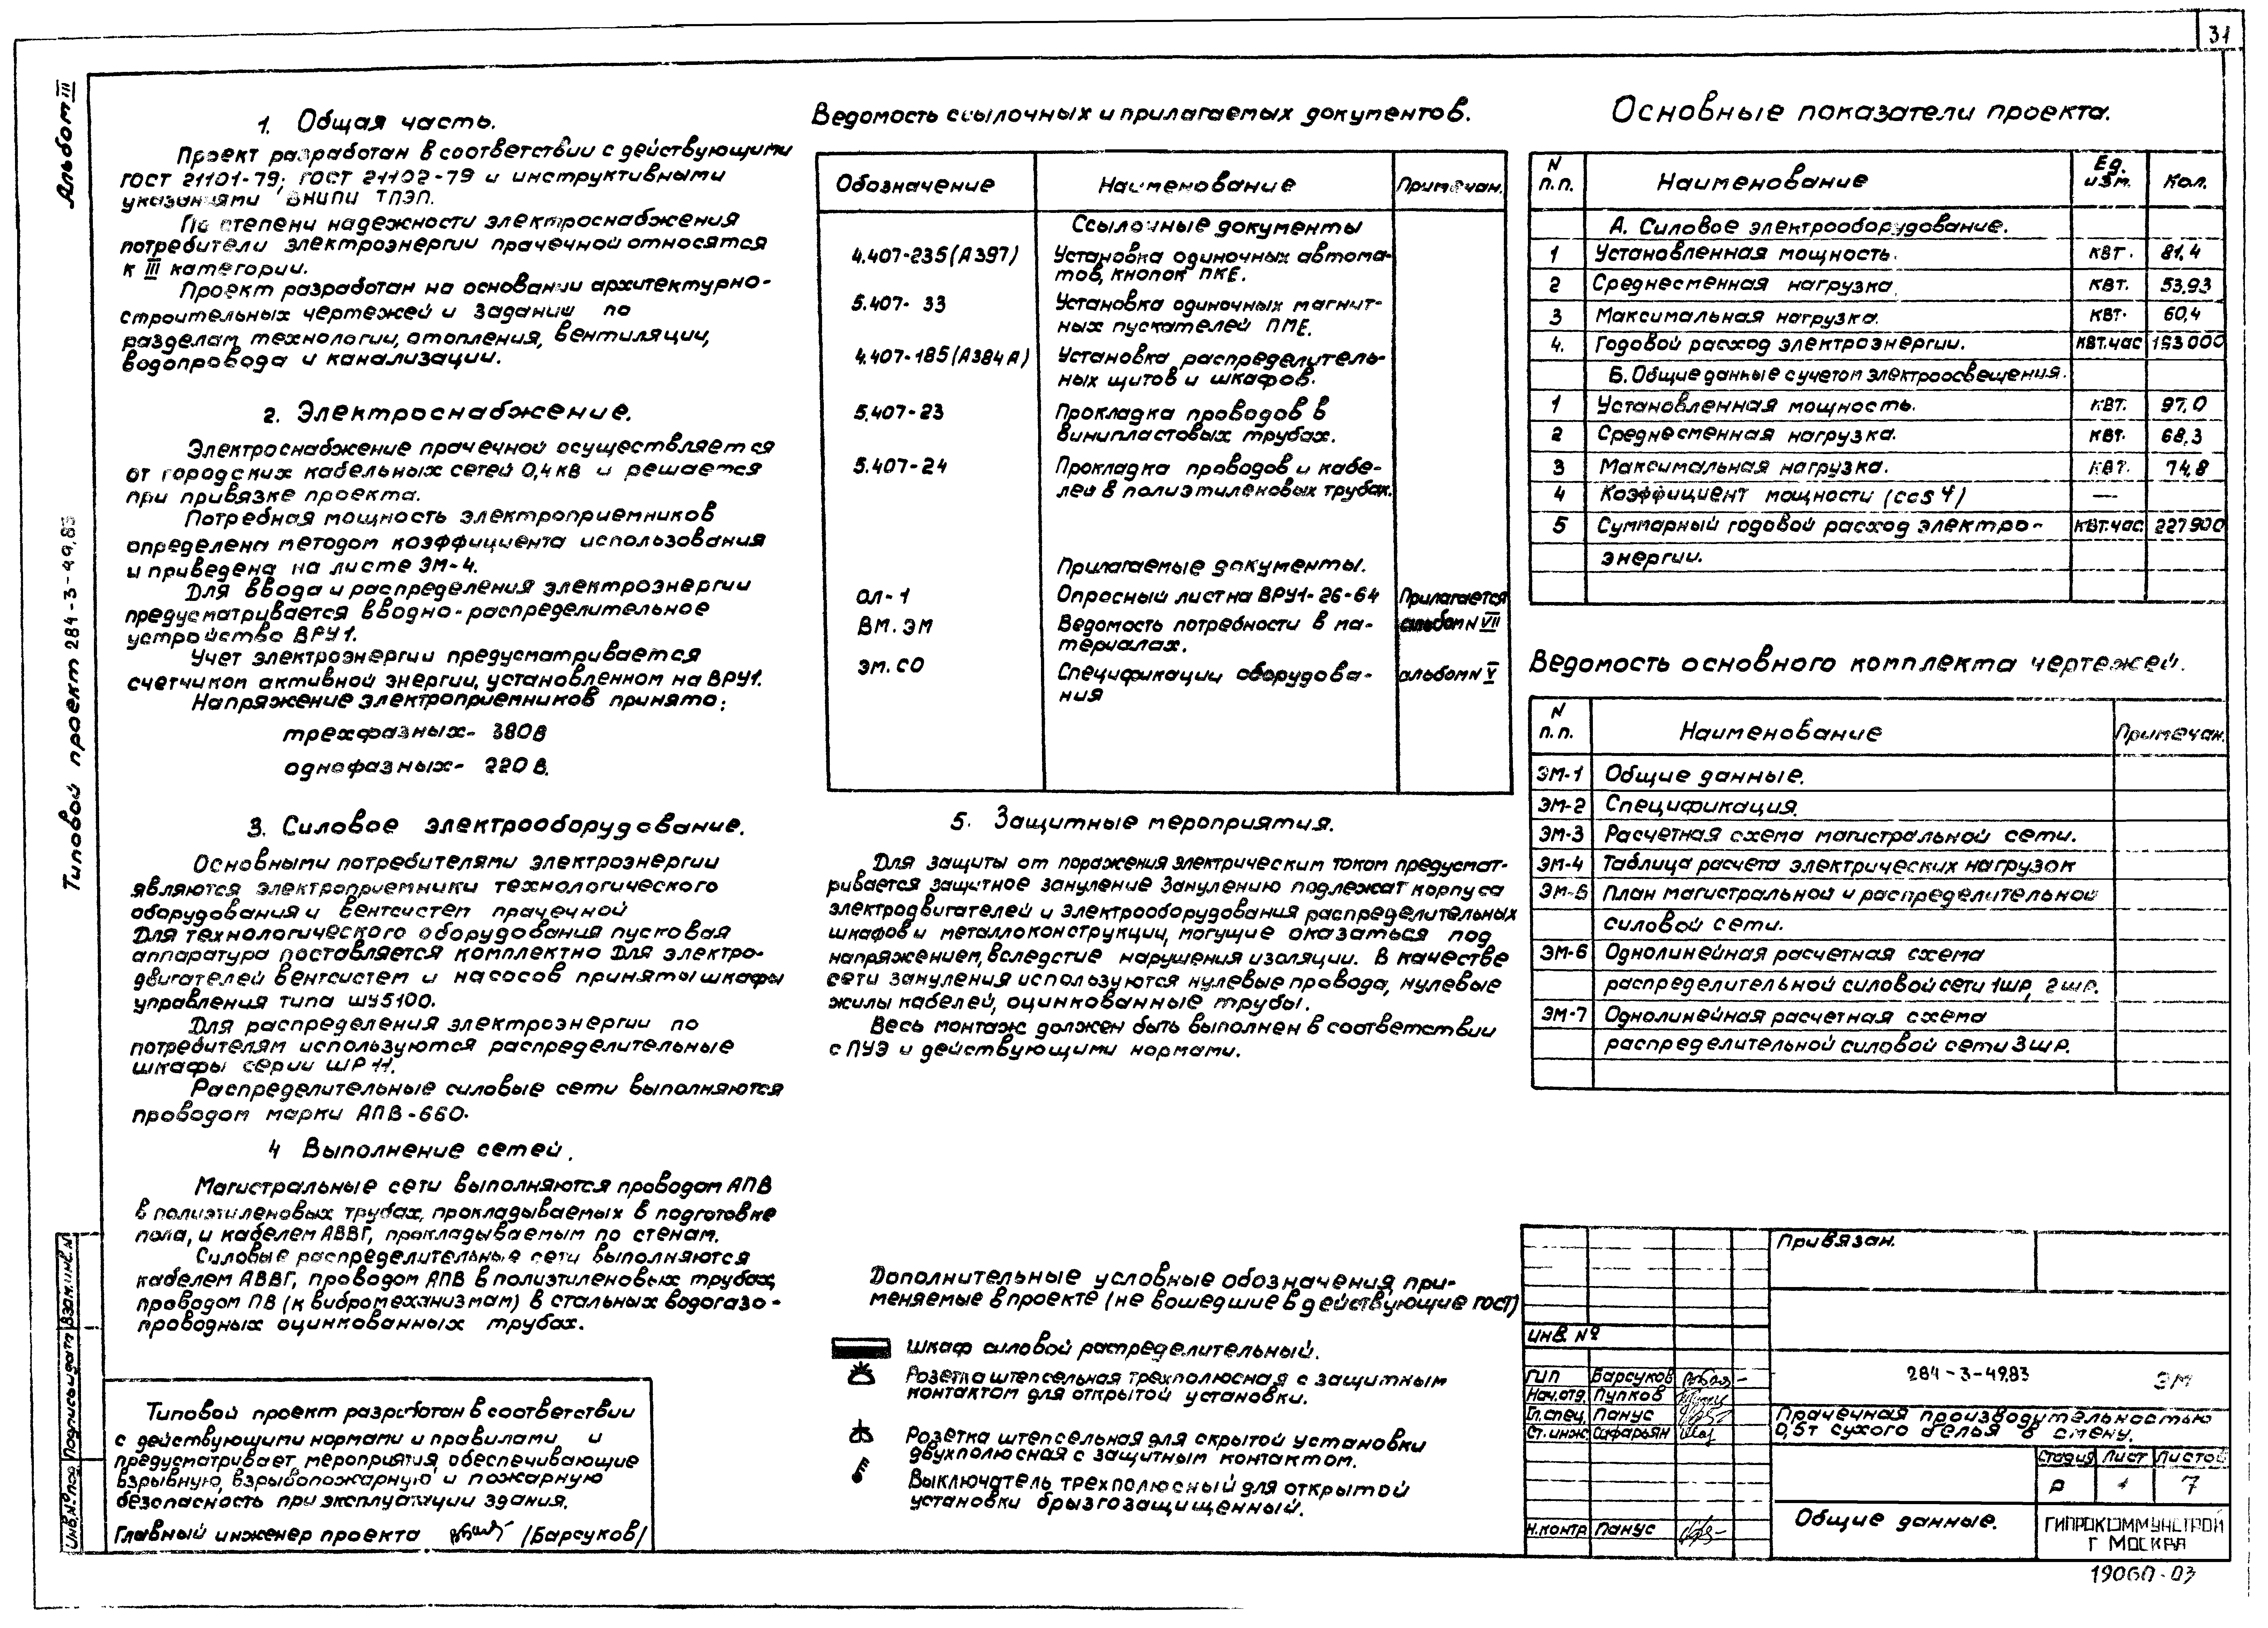 31
Альбом III
Типовой проект 284-3-49.83
1. Общая часть.
Проект разработан в соответствии с действующими
ГОСТ 21101-79; ГОСТ 21102-79 и инструктивными
указаниями ВНИПИ ТПЭП.
По степени надежности электроснабжения
потребители электроэнергии прачечной относятся
к III категории.
Проект разработан на основании архитектурно-
строительных чертежей и заданий по
разделам технологии, отопления, вентиляции,
водопровода и канализации.
2. Электроснабжение.
Электроснабжение прачечной осуществляется
от городских кабельных сетей 0,4 кв и решается
при привязке проекта.
Потребная мощность электроприемников
определена методом коэффициента использования
и приведена на листе ЭМ-4.
Для ввода и распределения электроэнергии
предусматривается вводно-распределительное
устройство ВРУ1.
Учет электроэнергии предусматривается
счетчиком активной энергии, установленном на ВРУ1.
Напряжение электроприемников принято:
трехфазных- 380в
однофазных- 220в.
3. Силовое электрооборудование.
Основными потребителями электроэнергии
являются электроприемники технологического
оборудования и вентсистем прачечной
Для технологического оборудования пусковая
аппаратура поставляется комплектно Для электро-
двигателей вентсистем и насосов приняты шкафы
управления типа ШУ5100.
Для распределения электроэнергии по
потребителям используются распределительные
шкафы серии ШР 11.
Распределительные силовые сети выполняются
проводом марки АПВ-660.
4 Выполнение сетей.
Магистральные сети выполняются проводом АПВ
в полиэтиленовых трубах, прокладываемых в подготовке
пола, и кабелем АВВГ, прокладываемым по стенам.
Силовые распределительные сети выполняются
кабелем АВВГ, проводом АПВ в полиэтиленовых трубах,
проводом ПВ (к вибромеханизмам) в стальных водогазо-
проводных оцинкованных трубах.
Типовой проект разработан в соответствии
с действующими нормами и правилами и
предусматривает мероприятия, обеспечивающие
взрывную, взрывопожарную и пожарную
безопасность при эксплуатации здания.
Главный инженер проекта /Барсуков/
Инв.№ под Подпись и дата Взам.инв.N
Ведомость ссылочных и прилагаемых документов.
Обозначение Наименование Примечан.
Ссылочные документы
4.407-235(А397) Установка одиночных автома-
тов, кнопок ПКЕ.
5.407-33 Установка одиночных магнит-
ных пускателей ПМЕ.
4.407-185(А384А) Установка распределитель-
ных щитов и шкафов.
5.407-23 Прокладка проводов в
винипластовых трубах.
5.407-24 Прокладка проводов и кабе-
лей в полиэтиленовых трубах.
Прилагаемые документы.
ОЛ-1 Опросный лист на ВРУ1-26-64 Прилагается
ВМ.ЭМ Ведомость потребности в ма- альбом N VII
териалах.
ЭМ.СО Спецификации оборудова- альбом N V
ния
5. Защитные мероприятия.
Для защиты от поражения электрическим током предусмат-
ривается защитное зануление Занулению подлежат корпуса
электродвигателей и электрооборудования распределительных
шкафов и металлоконструкции, могущие оказаться под
напряжением, вследстие нарушения изоляции. В качестве
сети зануления используются нулевые провода, нулевые
жилы кабелей, оцинкованные трубы.
Весь монтаж должен быть выполнен в соответствии
с ПУЭ и действующими нормами.
Дополнительные условные обозначения, при-
меняемые в проекте (не вошедшие в действующие гост)
Шкаф силовой распределительный.
Розетка штепсельная трехполюсная с защитным
контактом для открытой установки.
Розетка штепсельная для скрытой установки
двухполюсная с защитным контактом.
Выключатель трехполюсный для открытой
установки брызгозащищенный.
Основные показатели проекта.
N п.п. Наименование Ед. изм. Кол.
А. Силовое электрооборудование.
1 Установленная мощность. квт. 81,4
2 Среднесменная нагрузка. квт. 53,93
3 Максимальная нагрузка. квт. 60,4
4. Годовой расход электроэнергии. квт.час 193000
Б. Общие данные с учетом электроосвещения.
1 Установленная мощность. квт. 97,0
2 Среднесменная нагрузка. квт. 68,3
3 Максимальная нагрузка. квт. 74,8
4 Коэффициент мощности (cos φ) —
5 Суммарный годовой расход электро- квт.час 227900
энергии.
Ведомость основного комплекта чертежей.
N п.п. Наименование Примечан.
ЭМ-1 Общие данные.
ЭМ-2 Спецификация.
ЭМ-3 Расчетная схема магистральной сети.
ЭМ-4 Таблица расчета электрических нагрузок
ЭМ-5 План магистральной и распределительной
силовой сети.
ЭМ-6 Однолинейная расчетная схема
распределительной силовой сети 1шр, 2шр.
ЭМ-7 Однолинейная расчетная схема
распределительной силовой сети 3шр.
Привязан.
Инв. №
ГИП Барсуков
Нач.отд. Пупков
Гл.спец. Панус
Ст.инж. Сафарьян
Н.контр Панус
284-3-49.83 ЭМ
Прачечная производительностью
0,5т сухого белья в смену.
Стадия Лист Листов
Р 1 7
Общие данные.
ГИПРОКОММУНСТРОЙ
Г МОСКВА
19060-03